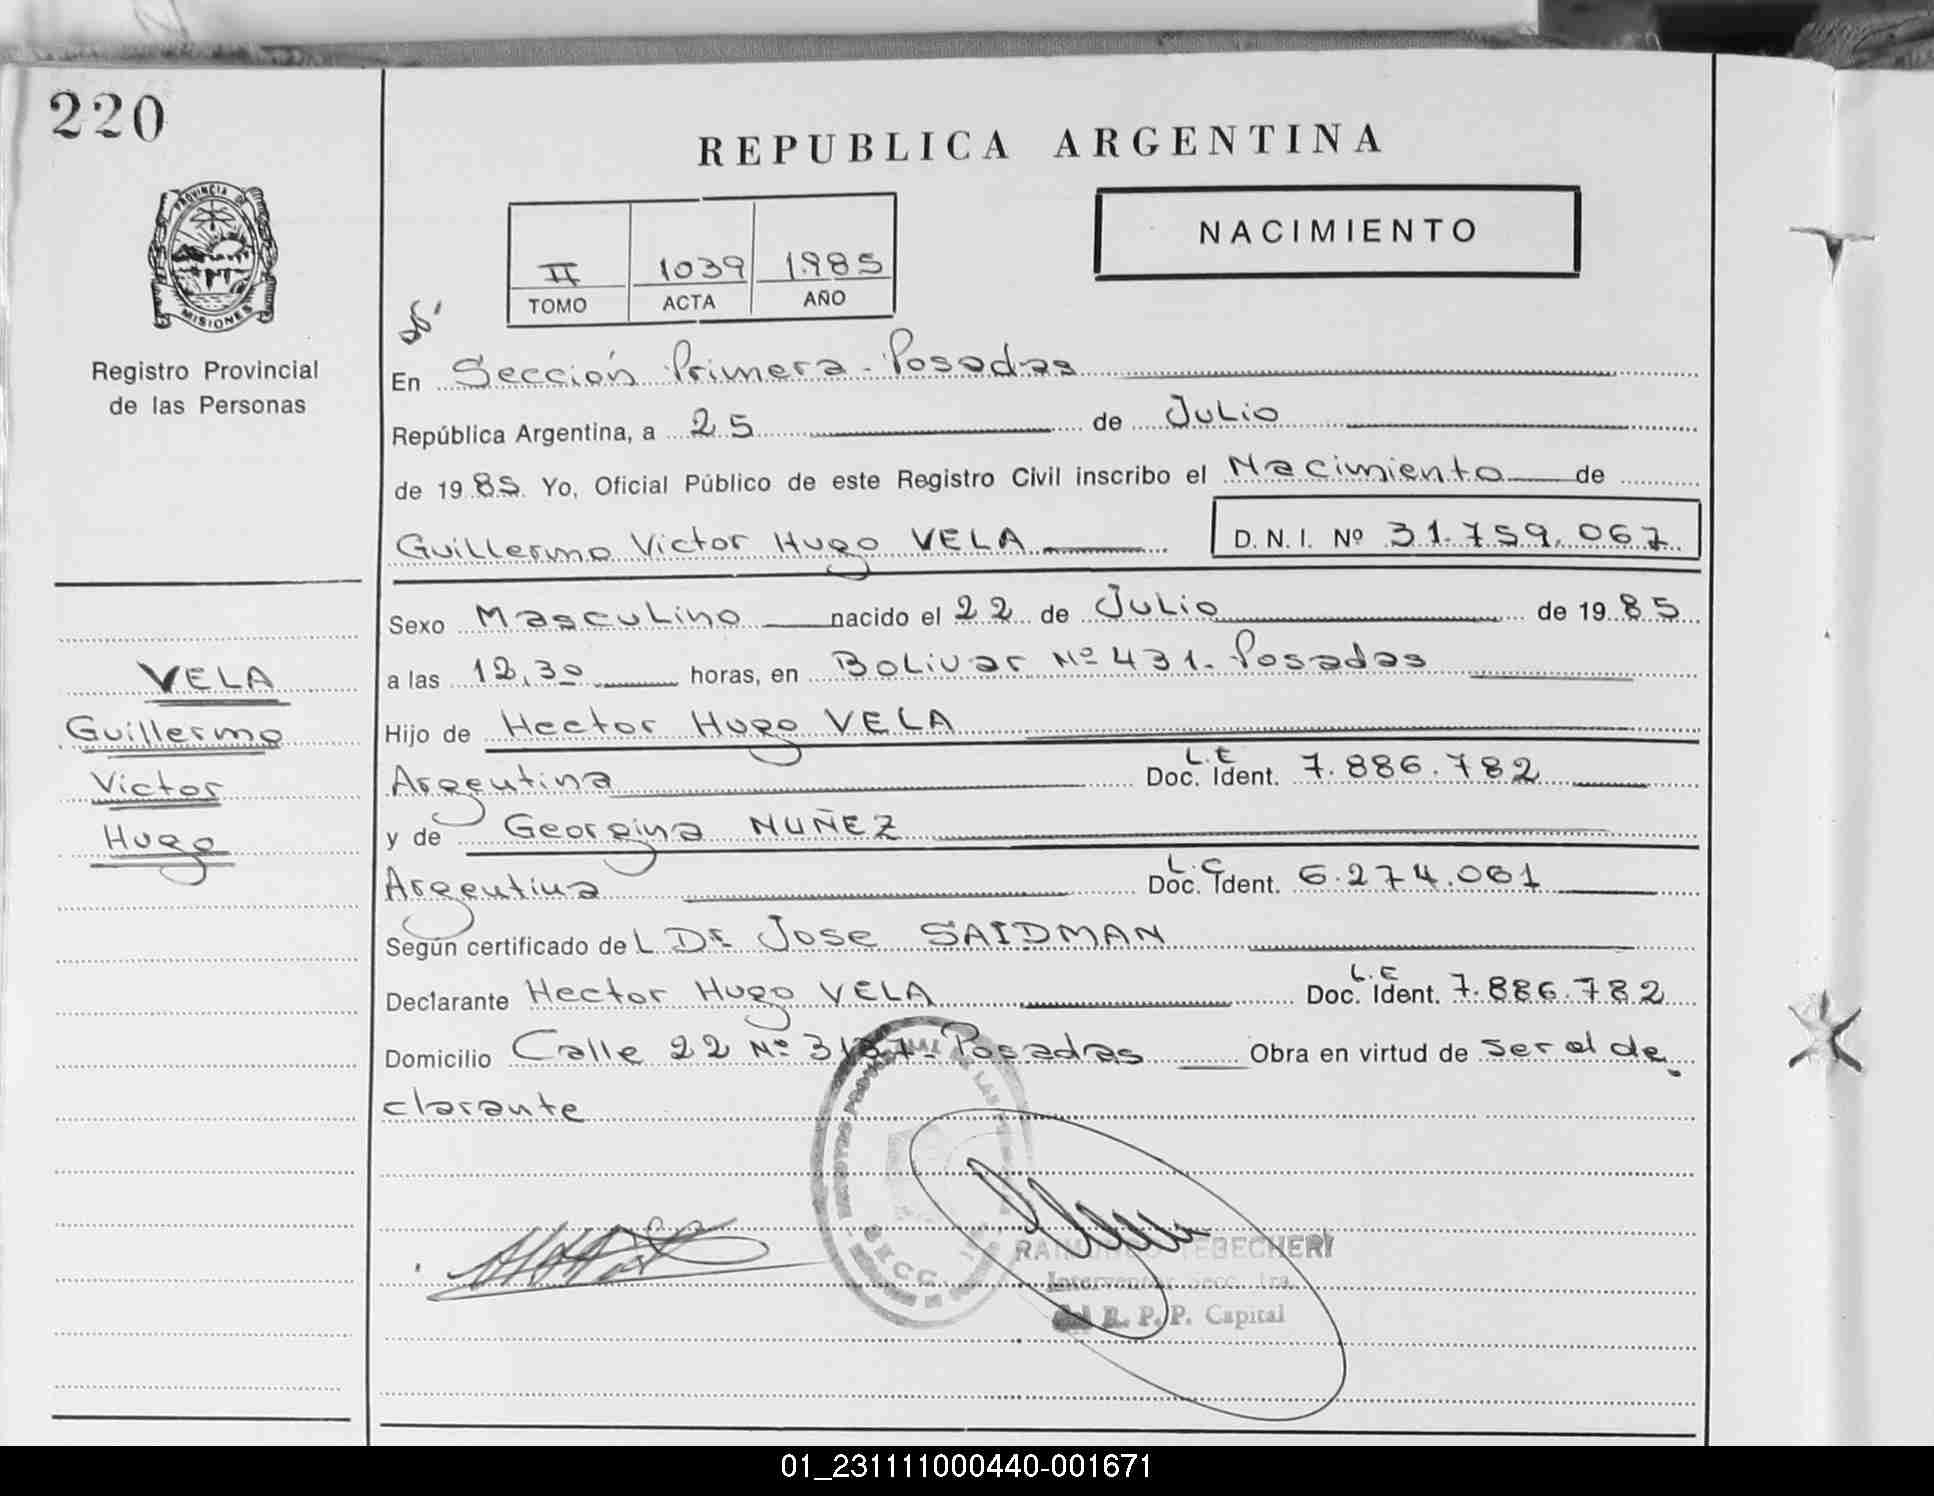 220
REPUBLICA ARGENTINA
NACIMIENTO
II 1039 1985
TOMO ACTA AÑO
PROVINCIA DE
MISIONES
Registro Provincial
de las Personas
En Sección Primera - Posadas
República Argentina, a 25 de Julio
de 1985. Yo, Oficial Público de este Registro Civil inscribo el Nacimiento de
Guillermo Victor Hugo VELA D.N.I. Nº 31.759.067
Sexo Masculino nacido el 22 de Julio de 1985
a las 12,30 horas, en Bolivar Nº 431. Posadas
Hijo de Hector Hugo VELA
Argentina L.E Doc. Ident. 7.886.782
y de Georgina NUÑEZ
Argentina L.C Doc. Ident. 6.274.061
Según certificado deL Dr Jose SAIDMAN
Declarante Hector Hugo VELA L.E Doc. Ident. 7.886.782
Domicilio Calle 22 Nº Posadas Obra en virtud de ser el de
clarante
VELA
Guillermo
Victor
Hugo
SECC. 1ra
RAIMUNDO TEBECHERI
Interventor Secc. 1ra.
R. P. P. Capital
01_231111000440-001671